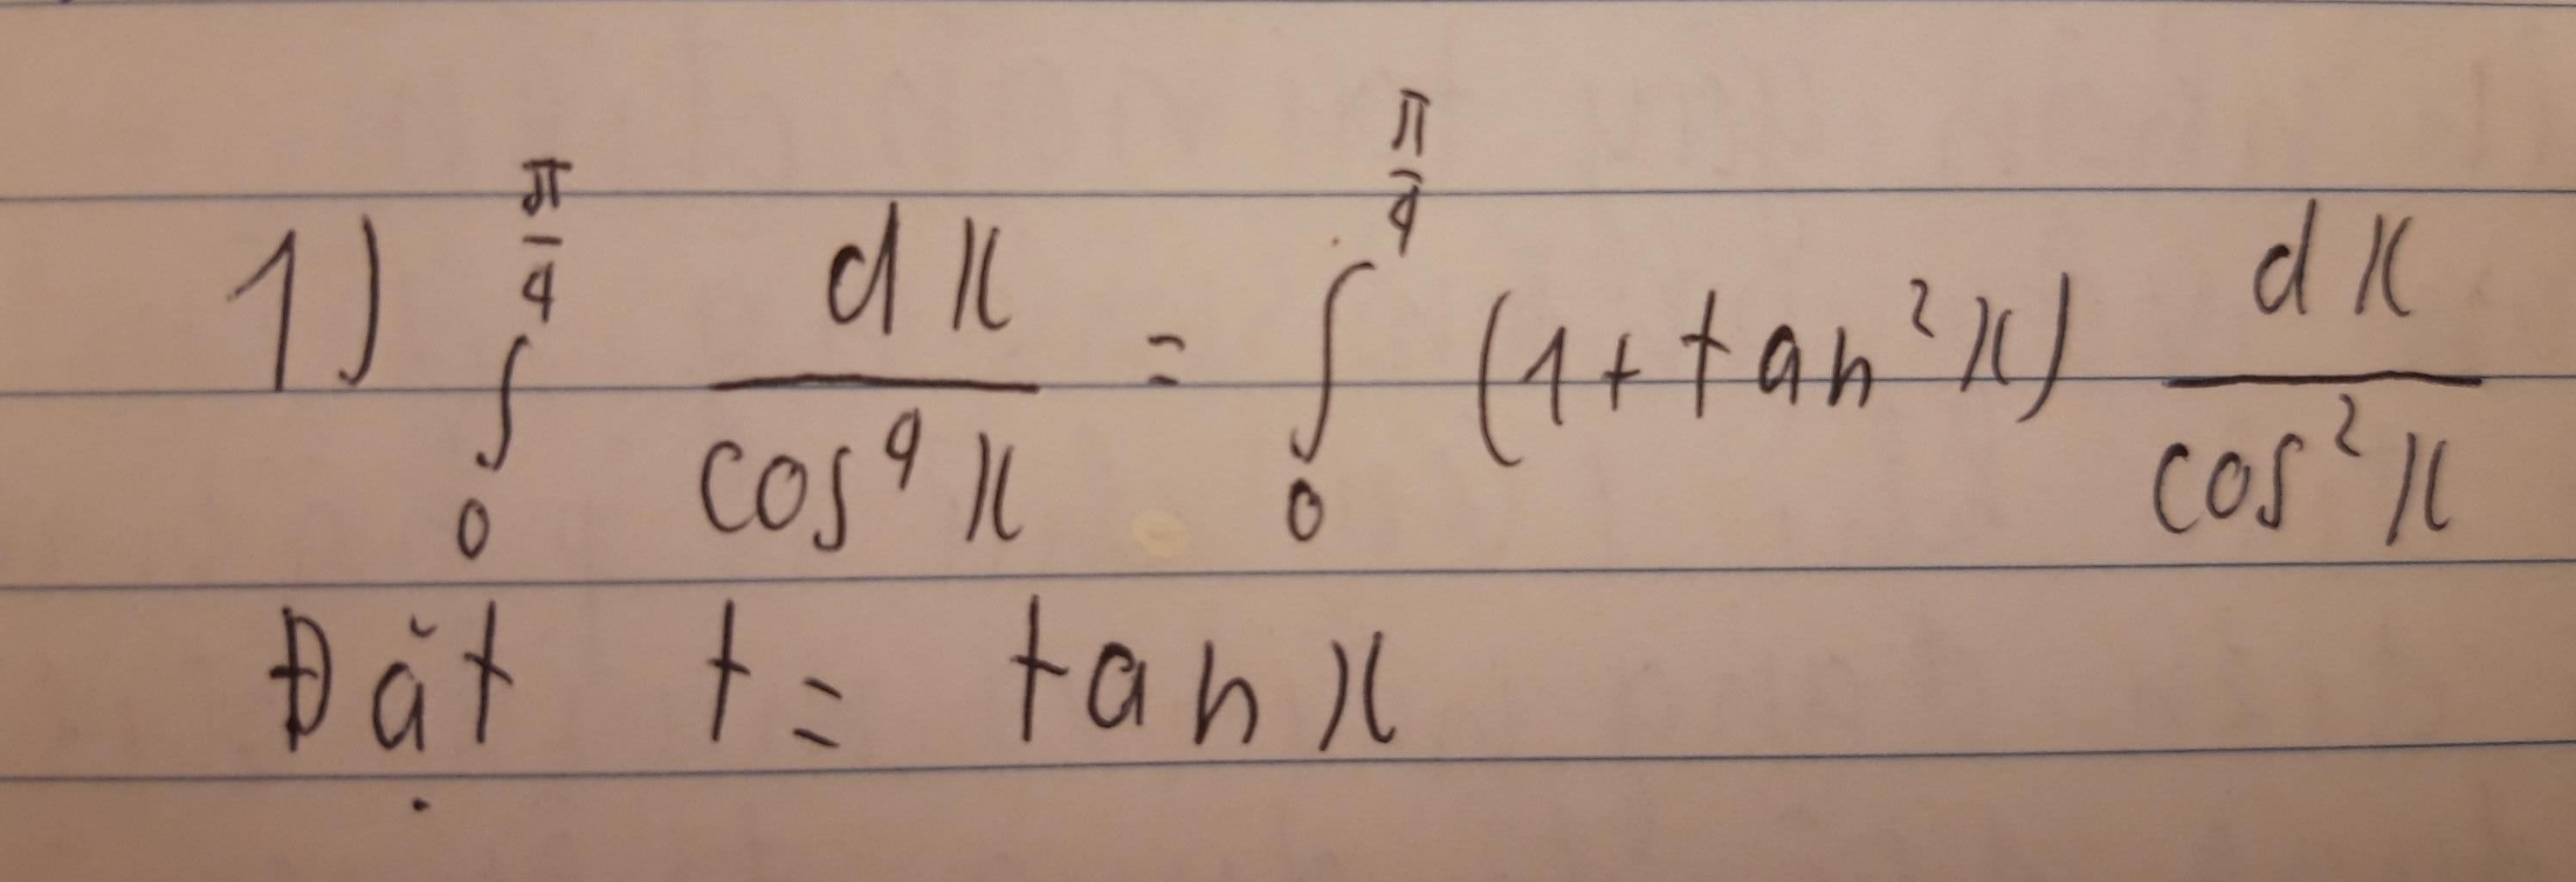 1) ∫₀^{π/4} dx / cos⁴x = ∫₀^{π/4} (1 + tan²x) dx / cos²x
Đặt t = tan x